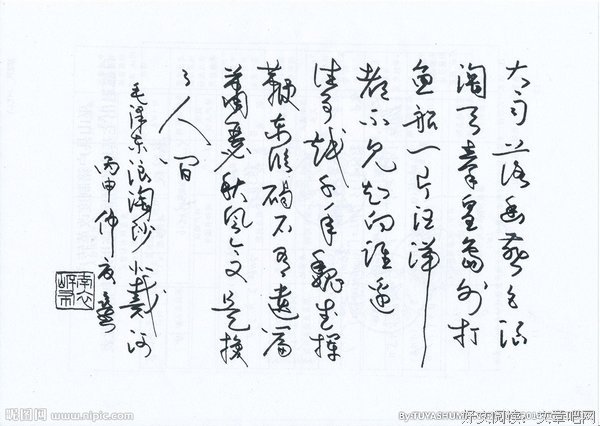 大雨落幽燕白浪
滔天秦皇岛外打
鱼船一片汪洋
都不见知向谁边
往事越千年魏武挥
鞭东临碣石有遗篇
萧瑟秋风今又是换
了人间
毛泽东浪淘沙北戴河
丙申仲夏
昵图网 www.nipic.com
By:TUYASHUMA